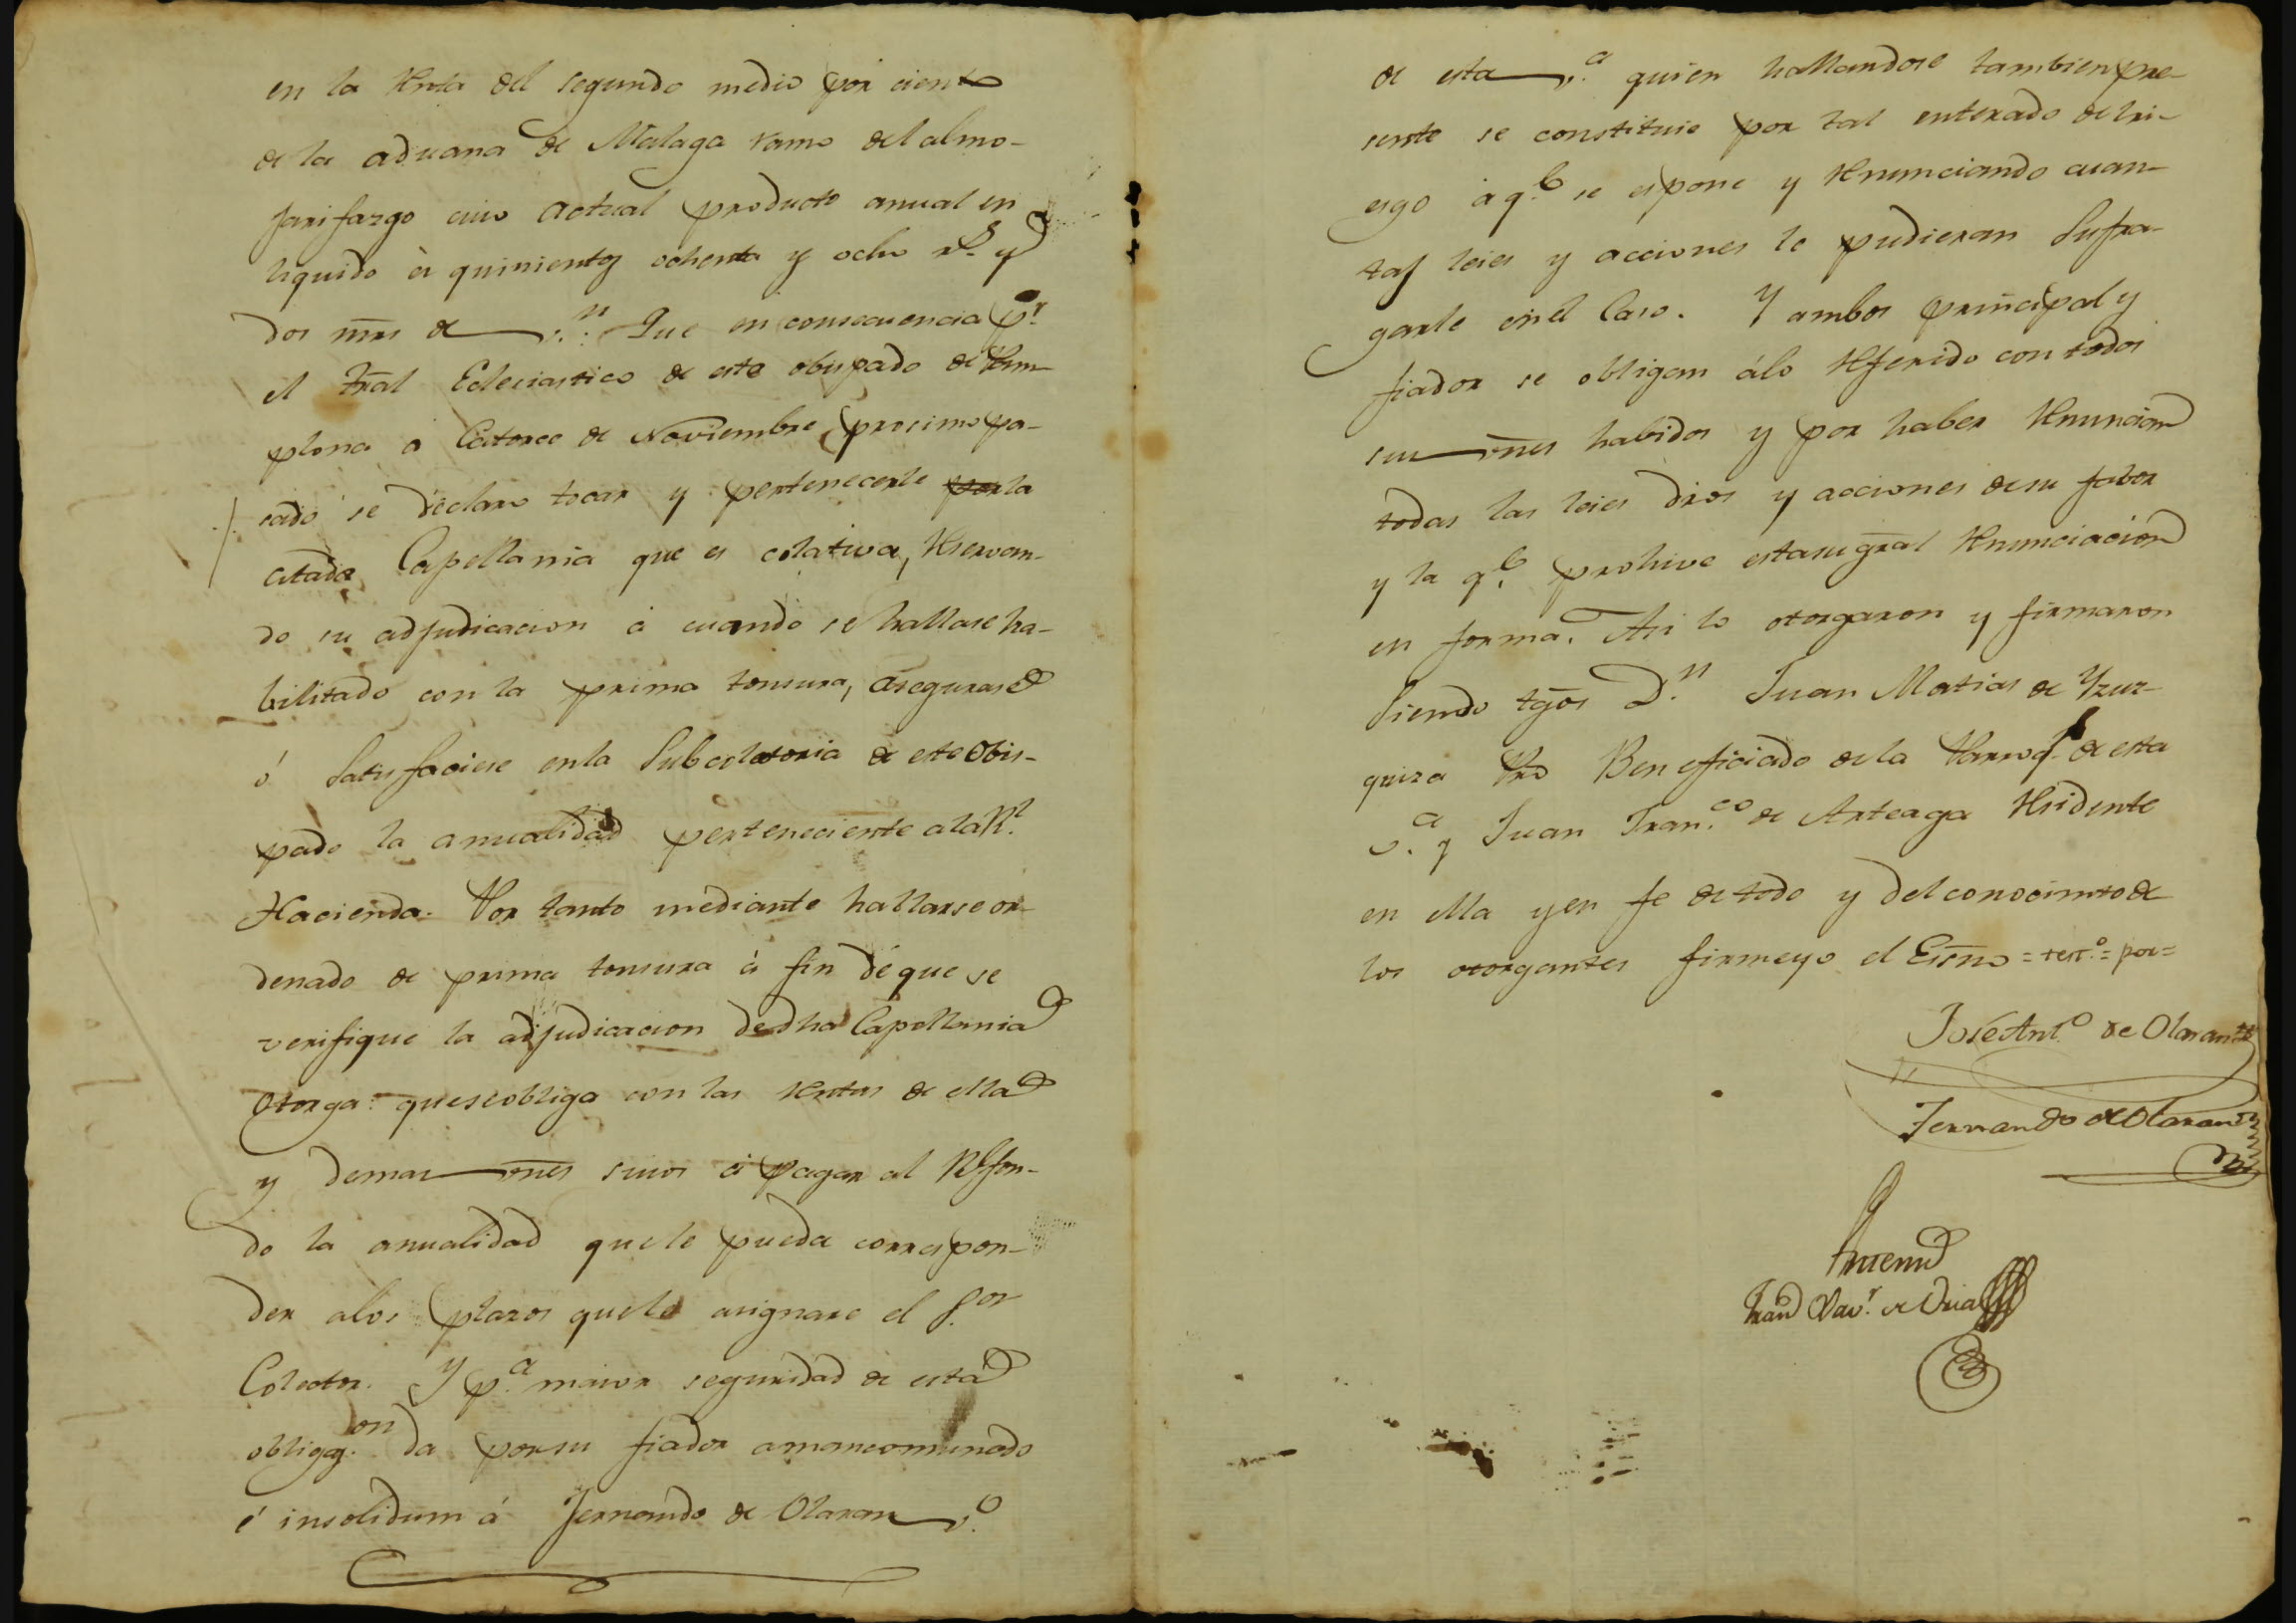 en la Renta del segundo medio por ciento
de la aduana de Malaga ramo del almo-
jarifazgo cuio actual producto anual en
liquido es quinientos ochenta y ocho r.s y
dos mrs de v.n: Que en consecuencia p.r
el Tral Eclesiastico de este obispado de Pam-
plona á Catorce de Noviembre procimo pa-
sado se declaro tocar y pertenecerle por la
citada Capellania que es colativa, Reservan-
do su adjudicacion á cuando se hallase ha-
bilitado con la prima tonsura, asegurase
ó Satisfaciese en la Subcolectoria de este Obis-
pado la anualidad perteneciente a la R.l
Hacienda. Por tanto mediante hallarse or-
denado de prima tonsura á fin de que se
verifique la adjudicacion de dha Capellania
Otorga: que se obliga con las Rentas de ella
y demas vnes suios á pagar al R.l fon-
do la anualidad que le pueda correspon-
der a los plazos que le asignare el S.or
Colector. Y p.a maior seguridad de esta
obligaz.on da por su fiador amancomunado
é insolidum á Fernando de Olaran v.o
de esta v.a quien hallandose tambien pre-
sente se constituie por tal enterado del ri-
esgo á q.e se espone y Renunciando cuan-
tas leies y acciones le pudieran Sufra-
garle en el Caso. Y ambos principal y
fiador se obligan á lo Referido con todos
sus vnes habidos y por haber Renuncian
todas las leies dros y acciones de su fabor
y la q.e prohive esta su gral Renunciacion
en forma. Asi lo otorgaron y firmaron
Siendo tgos D.n Juan Matias de Yzuz-
quiza Pro Beneficiado de la Parroq.l de esta
v.a y Juan Fran.co de Arteaga Residente
en ella y en fe de todo y del conocimto de
los otorgantes firme yo el Esno = test.o = por =
Jose Ant.o de Olaran
Fernando de Olaran
Ante mi
Xav.r de Oria